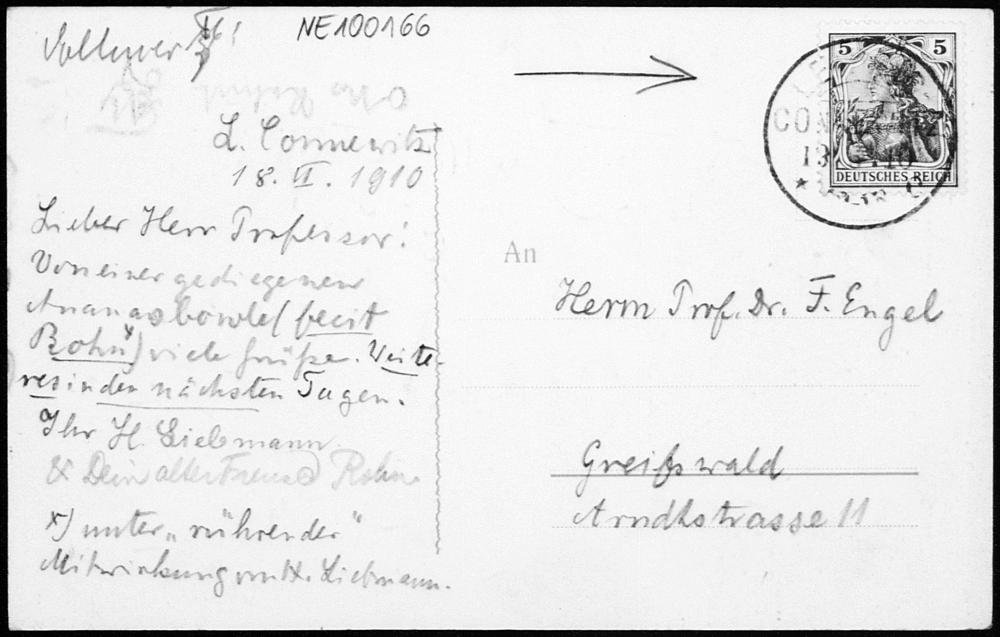 NE100166
L. Connewitz
18. VI. 1910
Lieber Herr Professor!
Von einer gediegenen
Ananasbowle (fecit
Rohn x) viele Grüße. Weite-
res in den nächsten Tagen.
Ihr H. Liebmann
& Dein alter Freund Rohn
x) unter „rührender“
Mitwirkung von H. Liebmann.
5 5
DEUTSCHES REICH
An
Herrn Prof. Dr. F. Engel
Greifswald
Arndtstrasse 11